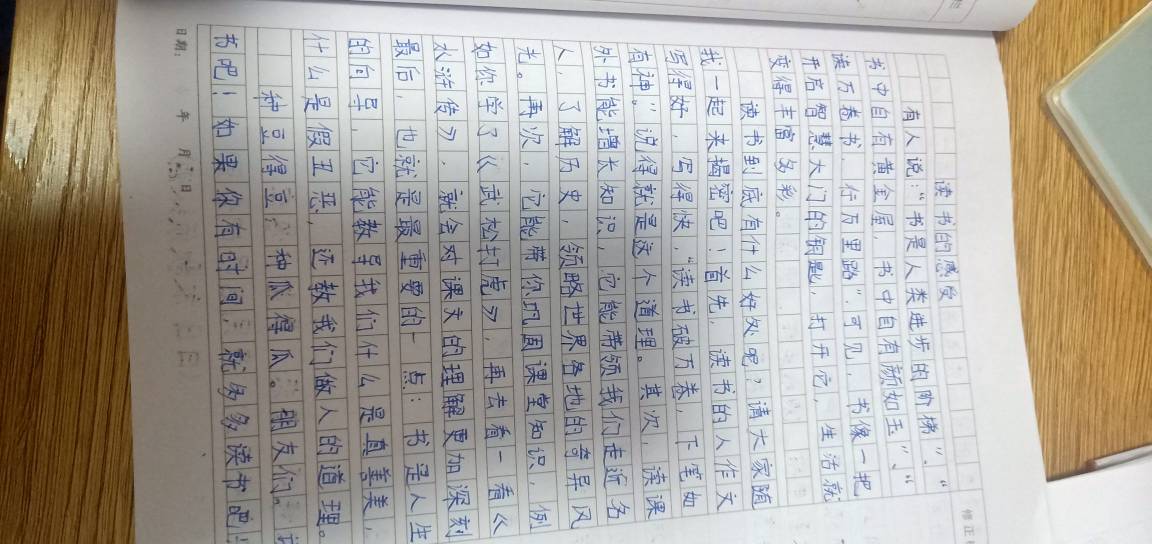 读书的感受
有人说：“书是人类进步的阶梯”、“
书中自有黄金屋，书中自有颜如玉”、“
读万卷书，行万里路”．可见，书像一把
开启智慧大门的钥匙，打开它，生活就
变得丰富多彩。
读书到底有什么好处呢？请大家随
我一起来揭密吧！首先，读书的人作文
写得好，写得快，“读书破万卷，下笔如
有神。”说得就是这个道理。其次，读课
外书能增长知识，它能带领我们走近名
人，了解历史，领略世界各地的奇异风
光。再次，它能带你巩固课堂知识，例
如你学了《武松打虎》，再去看一看《
水浒传》，就会对课文的理解更加深刻
最后，也就是最重要的一点：书是人生
的向导，它能教导我们什么是真善美，
什么是假丑恶，还教我们做人的道理。
种豆得豆，种瓜得瓜。朋友们。
书吧！如果你有时间，就多多读书吧！
日期： 年 月 日
修正